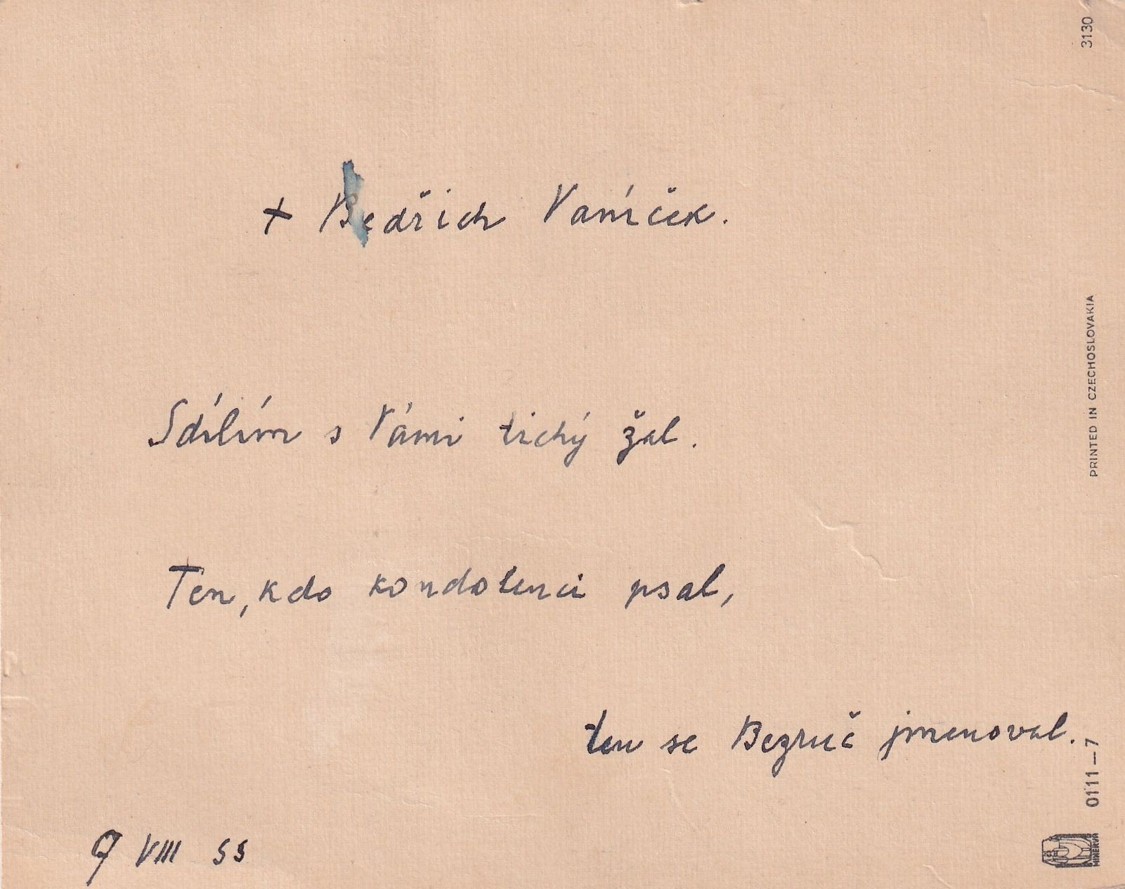 + Bedřich Vaníček.
Sdílím s Vámi tichý žal.
Ten, kdo kondolenci psal,
ten se Bezruč jmenoval.
9 VIII 55
3130
PRINTED IN CZECHOSLOVAKIA
0111-7
MINERVA